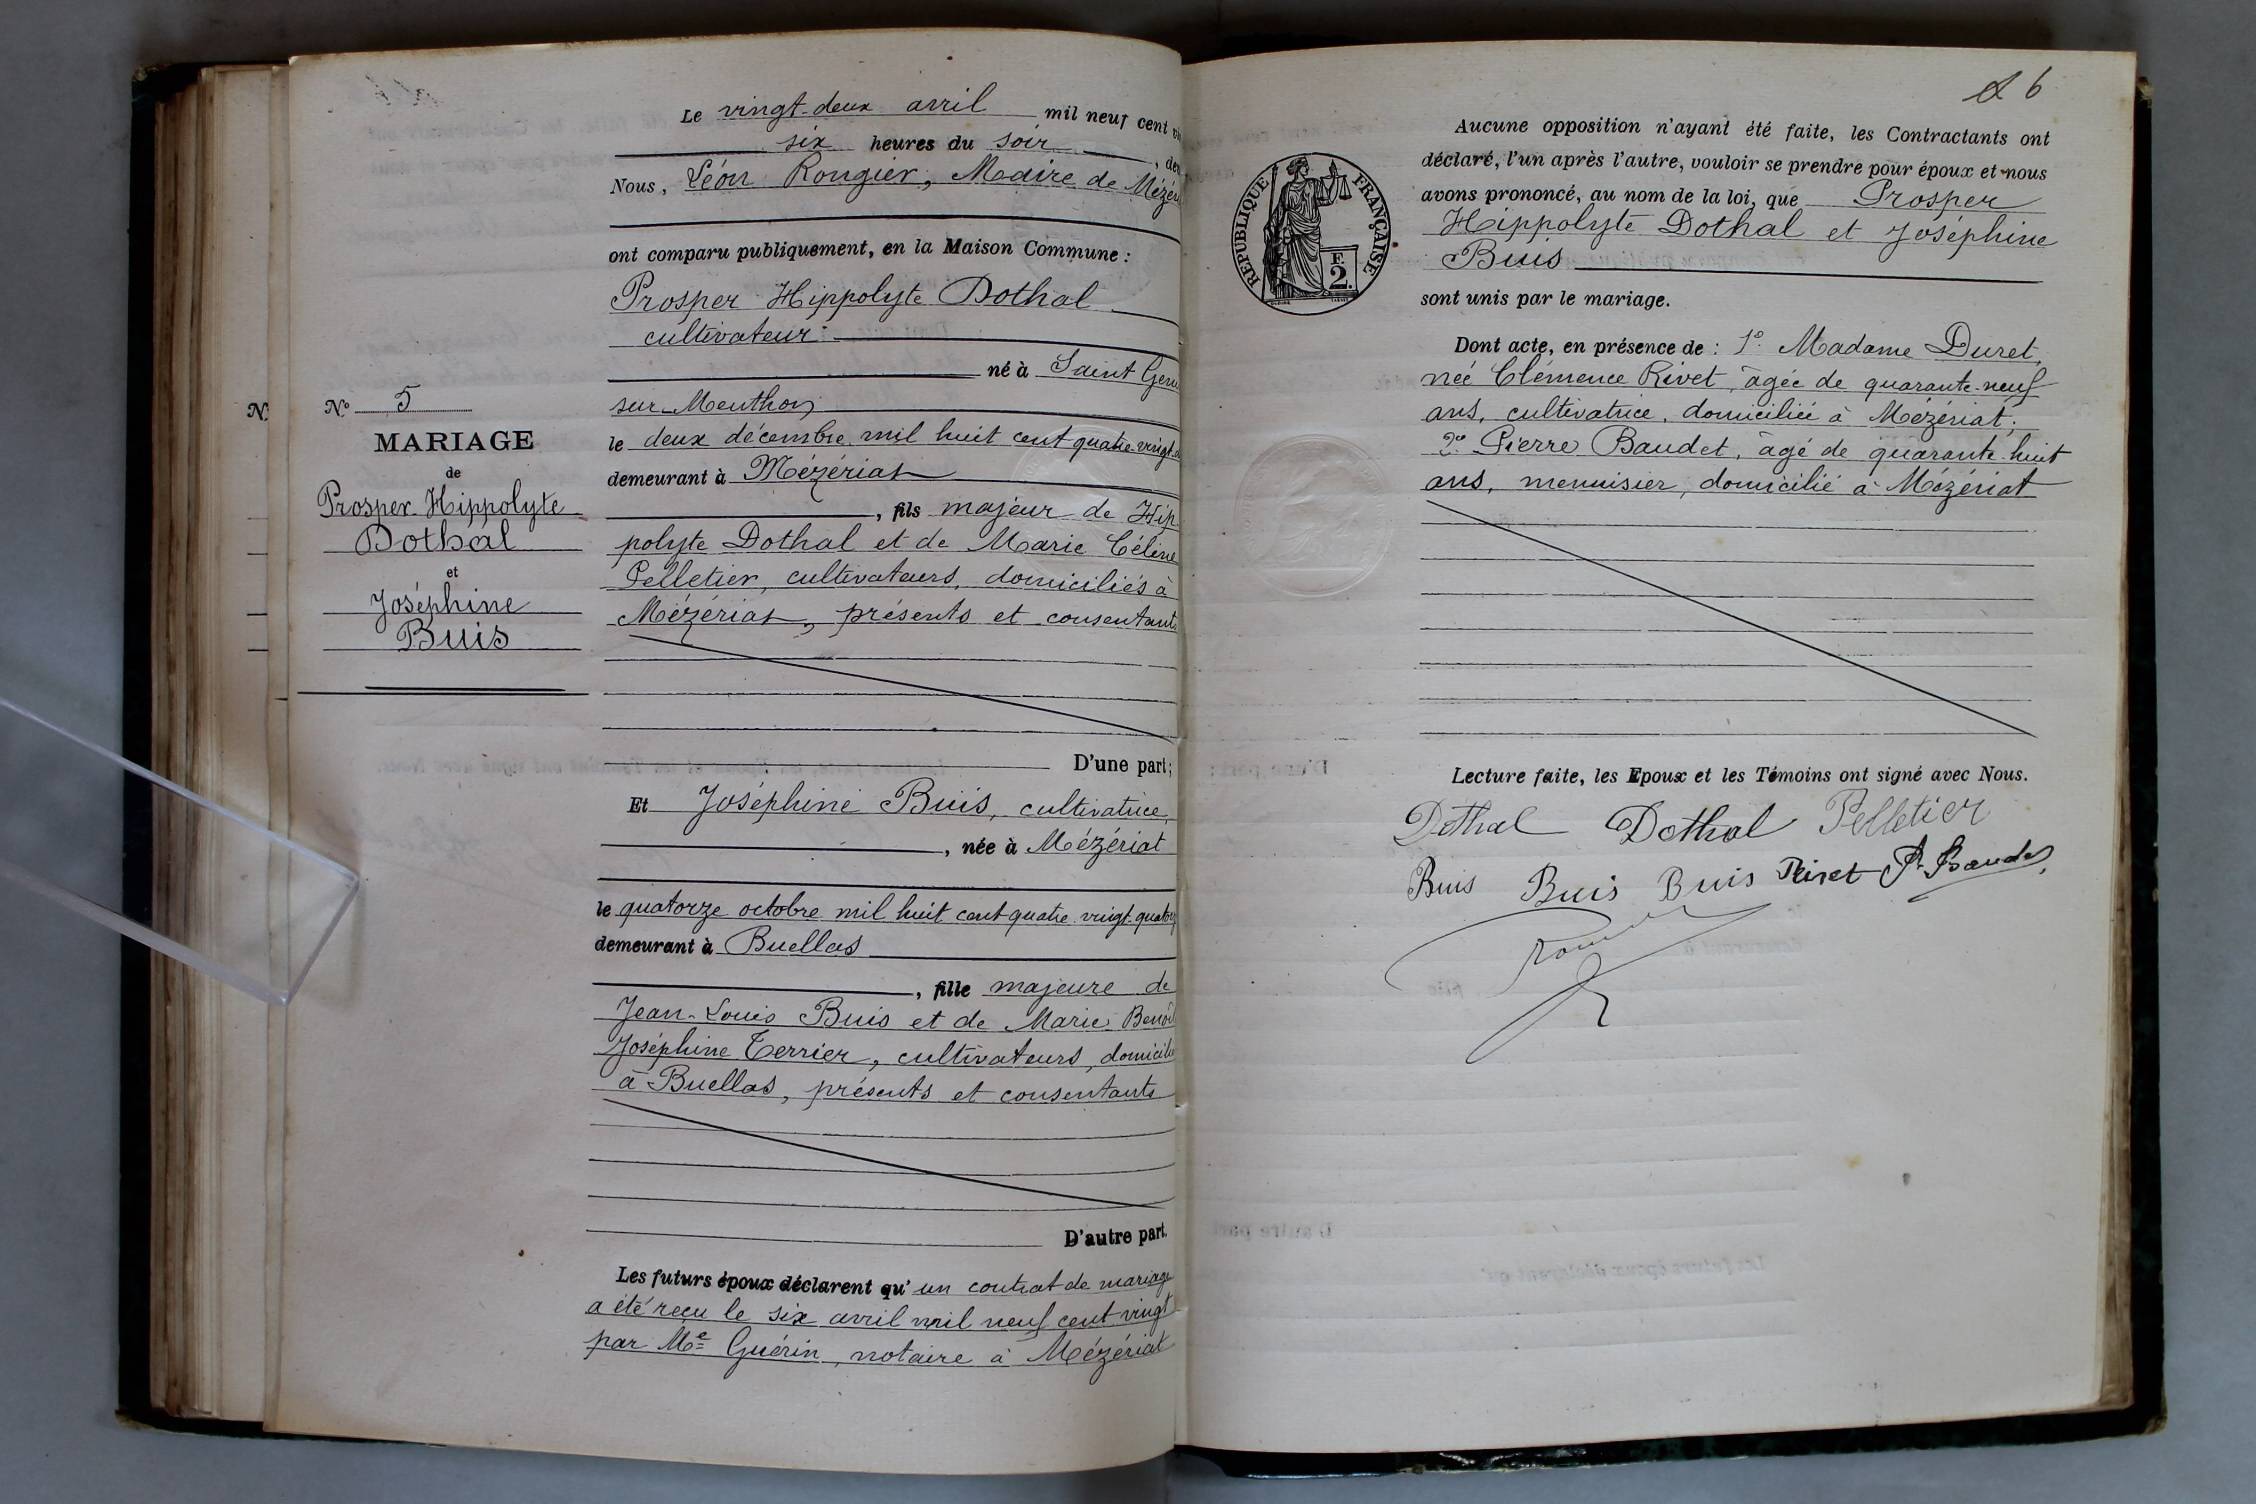 Le vingt-deux avril mil neuf cent
six heures du soir,
Nous, Léon Rougier, Maire de
ont comparu publiquement, en la Maison Commune :
Prosper Hippolyte Dothal
cultivateur
né à Saint
sur-Menthon
le deux décembre mil huit cent quatre-vingt
demeurant à Mézériat
, fils majeur de Hip
polyte Dothal et de Marie Céline
Pelletier, cultivateurs, domiciliés à
Mézériat, présents et consentants
D'une part;
Et Joséphine Buis, cultivatrice,
, née à Mézériat
le quatorze octobre mil huit cent quatre vingt
demeurant à Buellas
, fille majeure de
Jean-Louis Buis et de Marie
Joséphine Terrier, cultivateurs,
à Buellas, présents et consentants
D'autre part.
Les futurs époux déclarent qu'un contrat de mariage
a été reçu le six avril mil neuf cent vingt
par Me Guérin, notaire à Mézériat
N.
No 5
MARIAGE
de
Prosper Hippolyte
Dothal
et
Joséphine
Buis
6
RÉPUBLIQUE FRANÇAISE
F.
2.
Aucune opposition n'ayant été faite, les Contractants ont
déclaré, l'un après l'autre, vouloir se prendre pour époux et nous
avons prononcé, au nom de la loi, que Prosper
Hippolyte Dothal et Joséphine
Buis
sont unis par le mariage.
Dont acte, en présence de : 1o Madame Duret,
née Clémence Rivet, âgée de quarante-neuf
ans, cultivatrice, domiciliée à Mézériat;
2o Pierre Baudet, âgé de quarante-huit
ans, menuisier, domicilié à Mézériat
Lecture faite, les Epoux et les Témoins ont signé avec Nous.
Dothal Dothal Pelletier
Buis Buis Buis Rivet P. Baudet